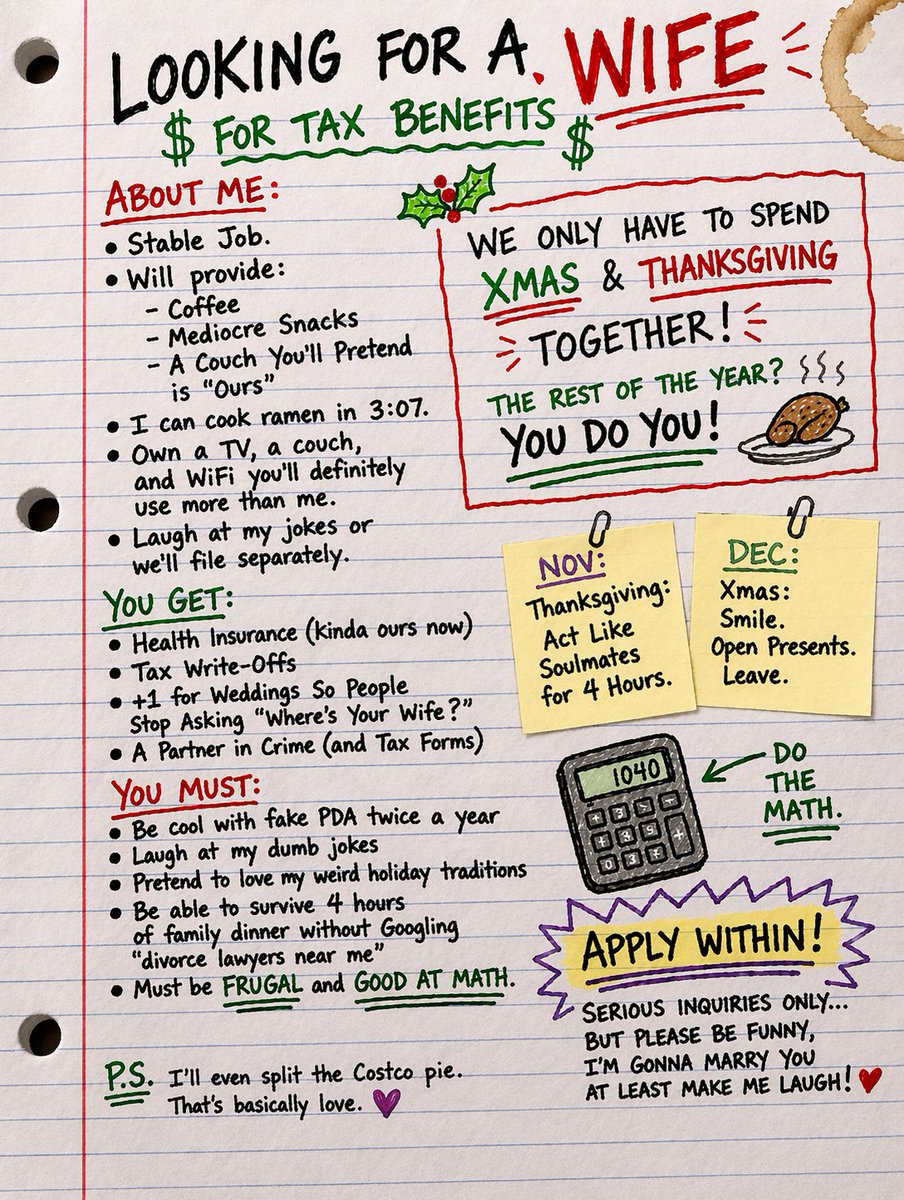 LOOKING FOR A WIFE
$ FOR TAX BENEFITS $
ABOUT ME:
• Stable Job.
• Will provide:
- Coffee
- Mediocre Snacks
- A Couch You'll Pretend
is "Ours"
• I can cook ramen in 3:07.
• Own a TV, a couch,
and WiFi you'll definitely
use more than me.
• Laugh at my jokes or
we'll file separately.
YOU GET:
• Health Insurance (kinda ours now)
• Tax Write-Offs
• +1 for Weddings So People
Stop Asking "Where's Your Wife?"
• A Partner in Crime (and Tax Forms)
YOU MUST:
• Be cool with fake PDA twice a year
• Laugh at my dumb jokes
• Pretend to love my weird holiday traditions
• Be able to survive 4 hours
of family dinner without Googling
"divorce lawyers near me"
• Must be FRUGAL and GOOD AT MATH.
P.S. I'll even split the Costco pie.
That's basically love.
WE ONLY HAVE TO SPEND
XMAS & THANKSGIVING
TOGETHER!
THE REST OF THE YEAR?
YOU DO YOU!
NOV:
Thanksgiving:
Act Like
Soulmates
for 4 Hours.
DEC:
Xmas:
Smile.
Open Presents.
Leave.
1040
DO
THE
MATH.
APPLY WITHIN!
SERIOUS INQUIRIES ONLY...
BUT PLEASE BE FUNNY,
I'M GONNA MARRY YOU
AT LEAST MAKE ME LAUGH!